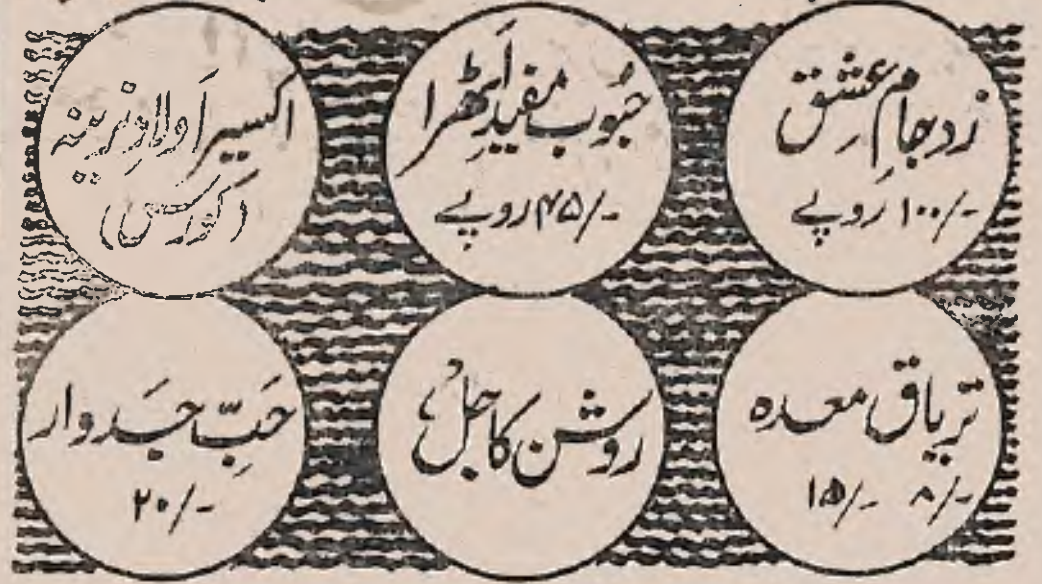 زدجام عشق
۱۰۰/- روپے
حبُوب مفیدِ اَٹھرا
۴۵/- روپے
اکسیر اَولادِ نرینہ
(کورس)
تریاق معدہ
۸/- ۱۵/-
روشن کاجل
حَبِّ جَدوار
۲۰/-